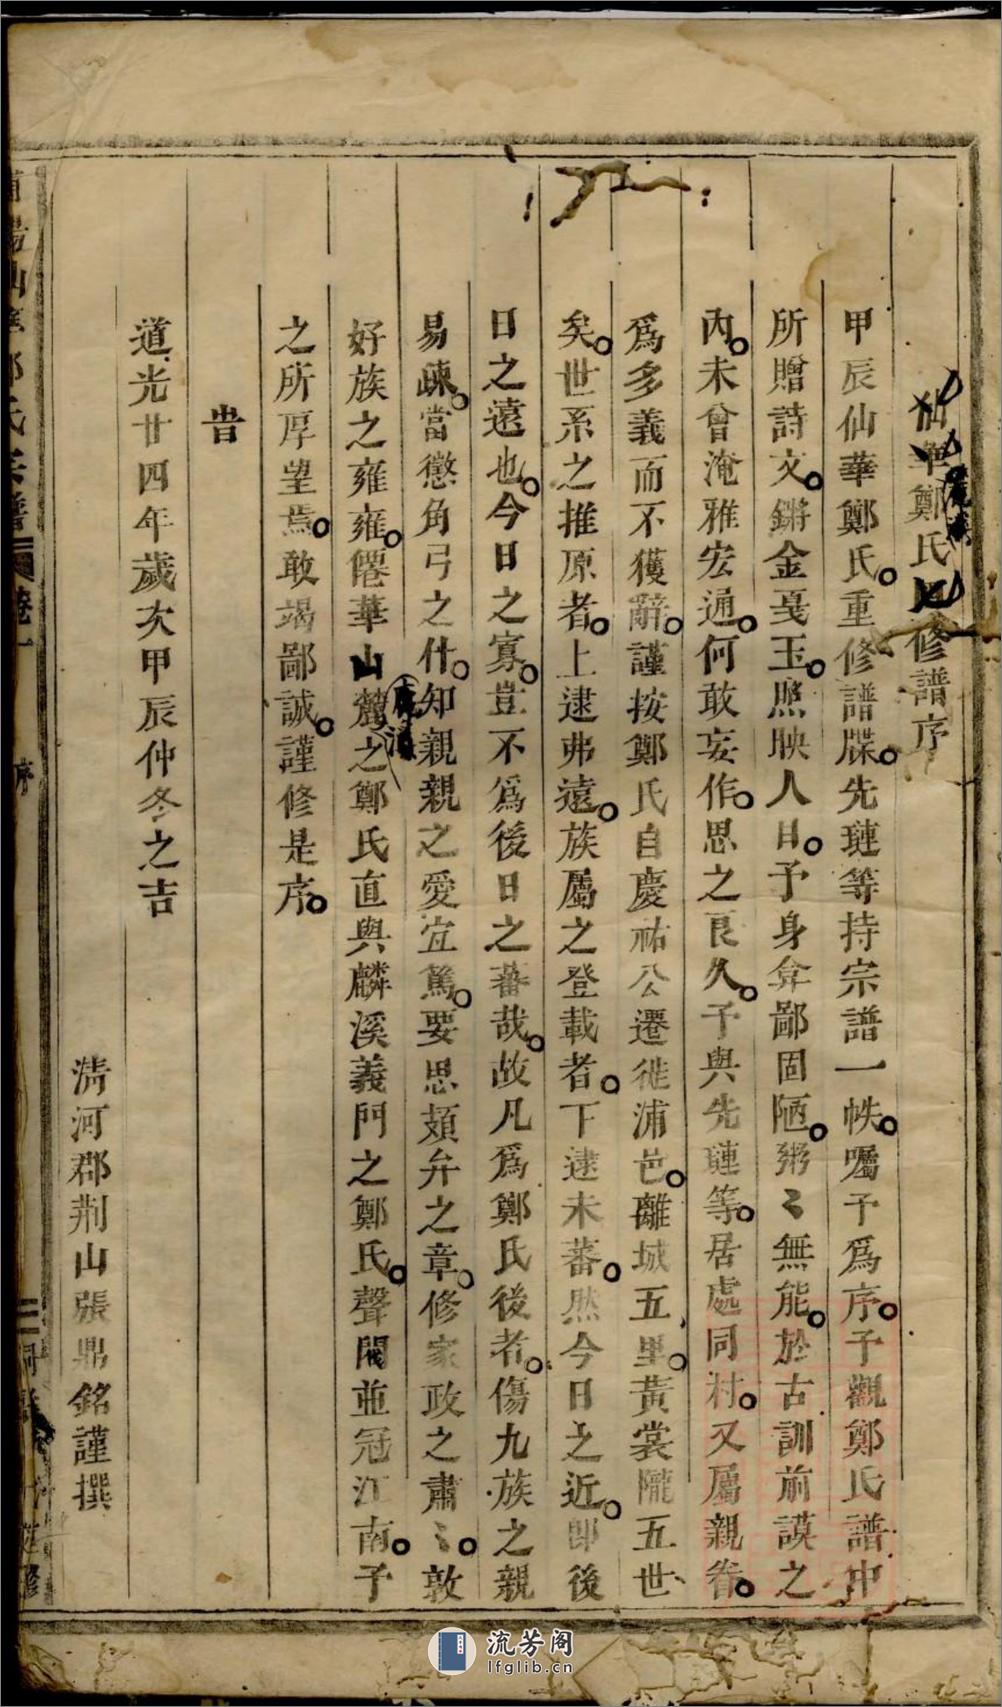 仙華鄭氏修譜序
甲辰仙華鄭氏重修譜牒先璉等持宗譜一帙囑予為序予觀鄭氏譜中
所贈詩文鏘金戛玉照映人目予身弇鄙固陋粥〻無能於古訓前謨之
內未曾淹雅宏通何敢妄作思之良久予與先璉等居處同村又屬親眷
為多義而不獲辭謹按鄭氏自慶祐公遷徙浦邑離城五里黃裳隴五世
矣世系之推原者上逮弗遠族屬之登載者下逮未蕃然今日之近即後
日之遠也今日之寡豈不為後日之蕃哉故凡為鄭氏後者傷九族之親
易疎當懲角弓之什知親親之愛宜篤要思頍弁之章修家政之肅〻敦
好族之雍雍僊華山麓之鄭氏直與麟溪義門之鄭氏聲聞並冠江南予
之所厚望焉敢竭鄙誠謹修是序
旹
道光廿四年歲次甲辰仲冬之吉
清河郡荆山張鼎銘謹撰
氏宗譜 卷一 序
流芳阁
lfglib.cn